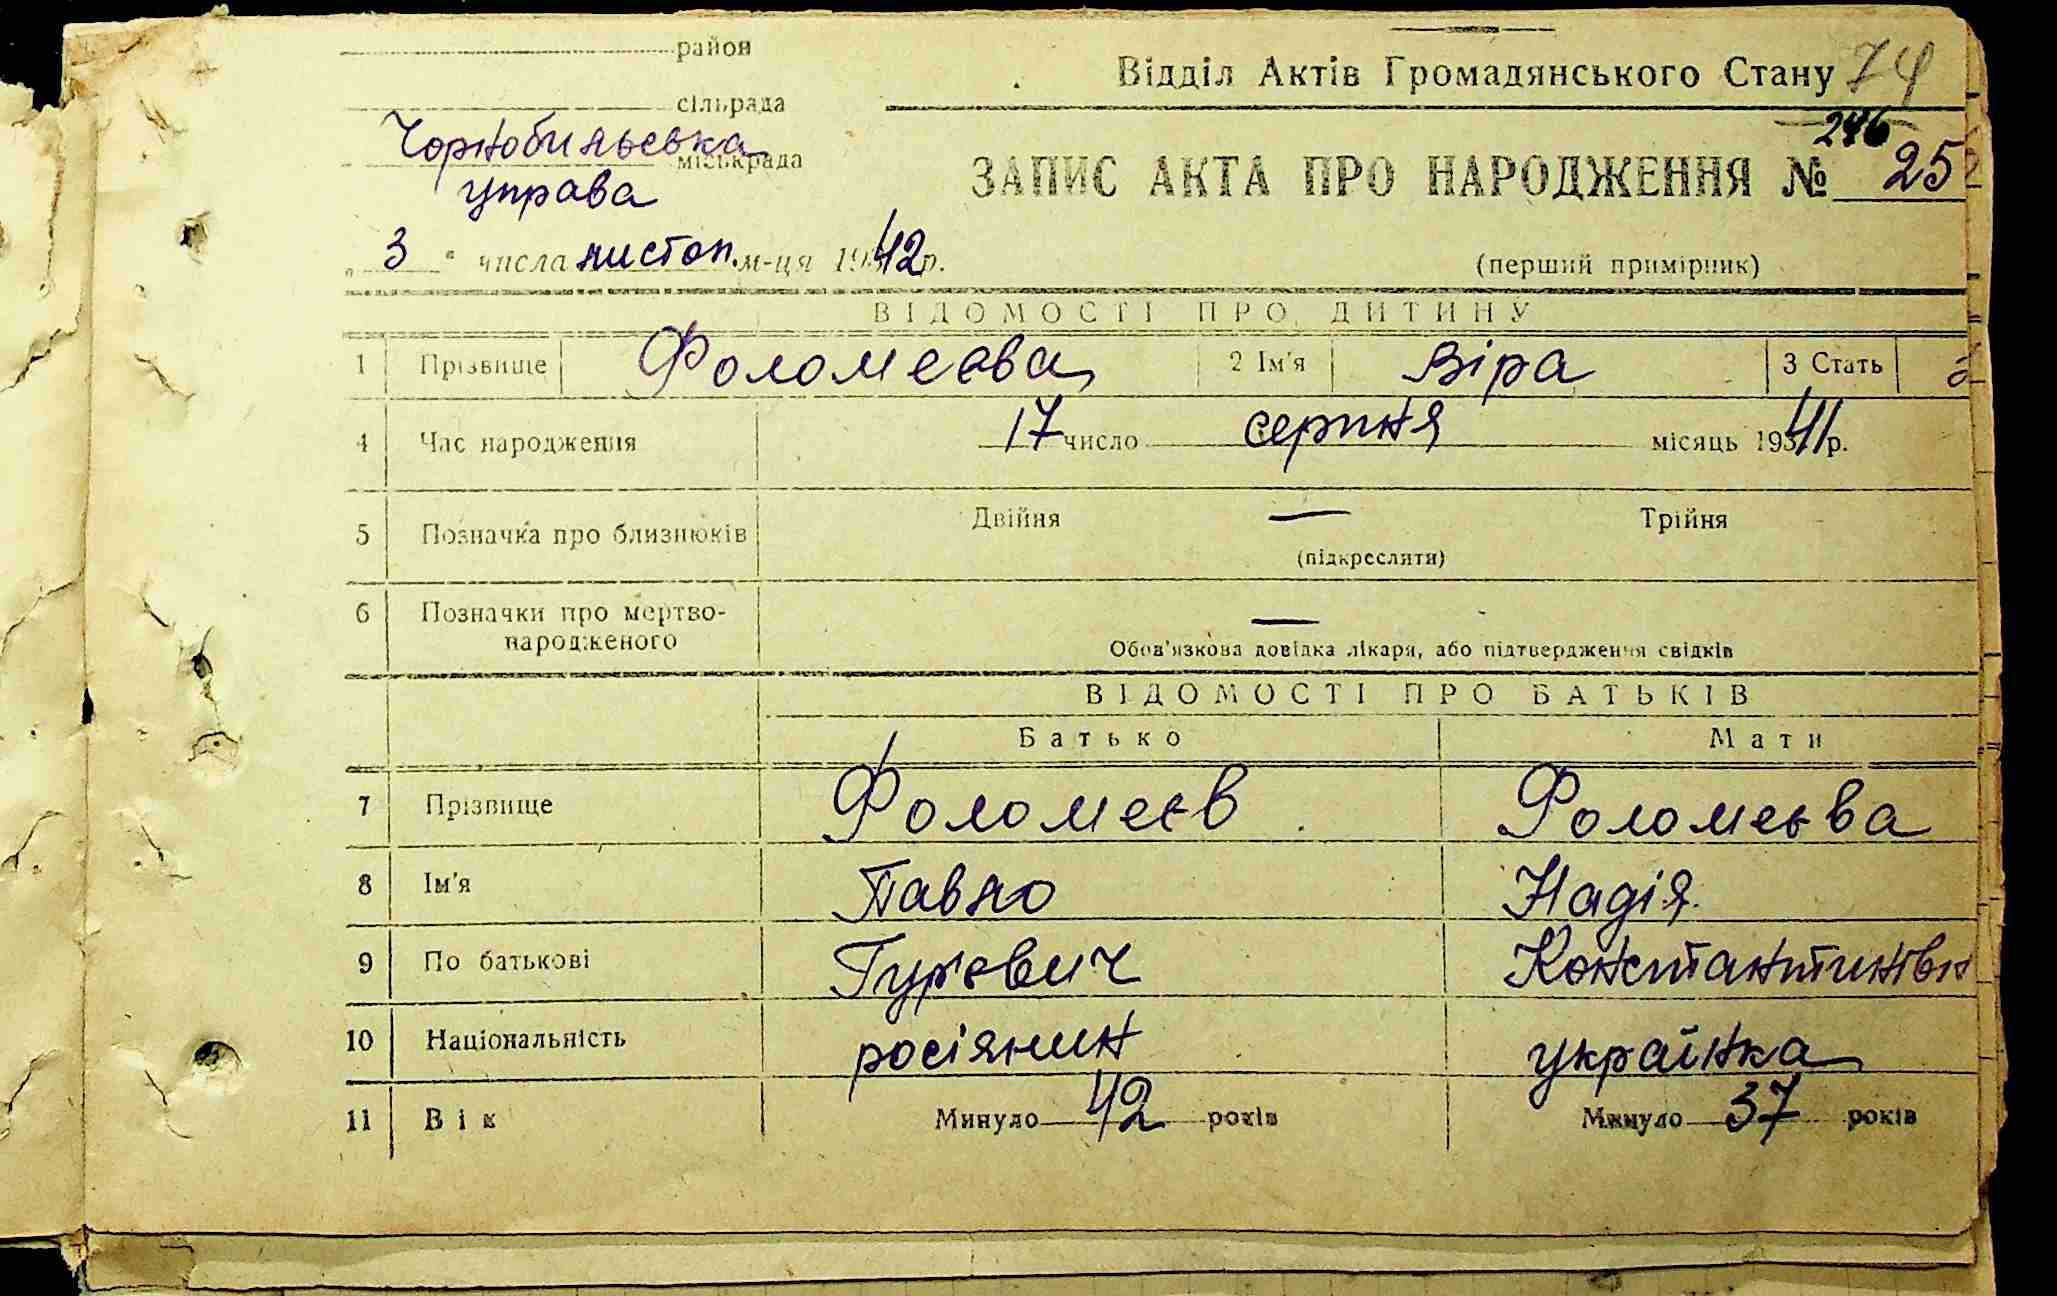 район
Відділ Актів Громадянського Стану 74
сільрада
Чорнобильська
міськрада
управа
246
ЗАПИС АКТА ПРО НАРОДЖЕННЯ № 25
„ 3 “ числа листоп. м-ця 1942 р.
(перший примірник)
ВІДОМОСТІ ПРО ДИТИНУ
1 Прізвище Фоломеєва 2 Ім'я Віра 3 Стать
4 Час народження 17 число серпня місяць 1941 р.
5 Позначка про близнюків Двійня — Трійня
(підкреслити)
6 Позначки про мертво-
народженого —
Обов'язкова довідка лікаря, або підтвердження свідків
ВІДОМОСТІ ПРО БАТЬКІВ
Батько Мати
7 Прізвище Фоломеєв Фоломеєва
8 Ім'я Павло Надія
9 По батькові Гурєвич Константинівн
10 Національність росіянин українка
11 Вік Минуло 42 років Минуло 37 років